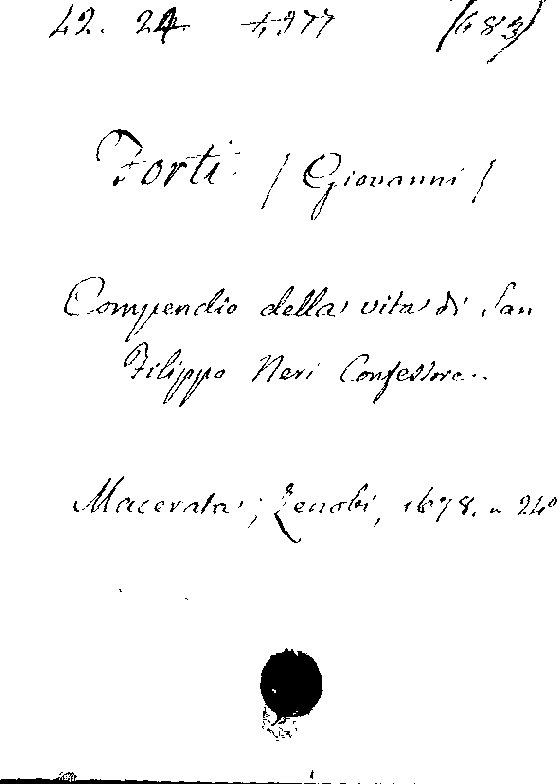 42. 24. 4977 (683)
Forti (Giovanni)
Compendio della vita di San
Filippo Neri Confessore.
Macerata; Zenobi, 1678. in 24°